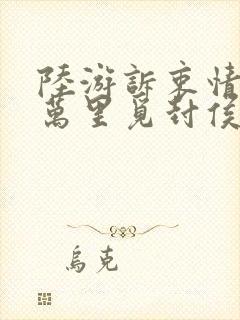 陸游訴衷情
萬里覓封侯
烏克